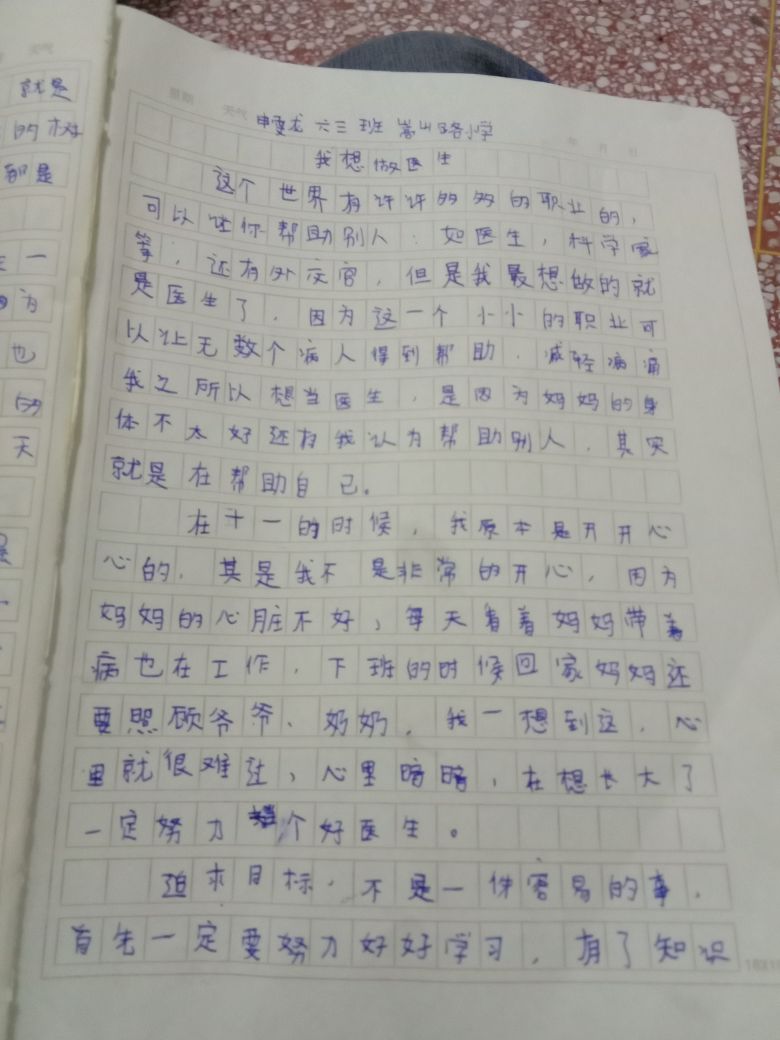 就是
的
都是
一
为
也
的
天
星期 天气 年 月 日
申雯龙 六三 班 嵩山路小学
我想做医生
这个世界有许许多多的职业的，
可以让你帮助别人．如医生，科学家
等，还有外交官，但是我最想做的就
是医生了．因为这一个小小的职业可
以让无数个病人得到帮助．减轻病痛
我之所以想当医生．是因为妈妈的身
体不太好还有我认为帮助别人．其实
就是在帮助自己。
在十一的时候，我原本是开开心
心的．其是我不是非常的开心，因为
妈妈的心脏不好，每天看着妈妈带着
病也在工作．下班的时候回家妈妈还
要照顾爷爷、奶奶．我一想到这．心
里就很难过，心里暗暗，在想长大了
一定努力 个好医生。
追求目标．不是一件容易的事．
首先一定要努力好好学习，有了知识